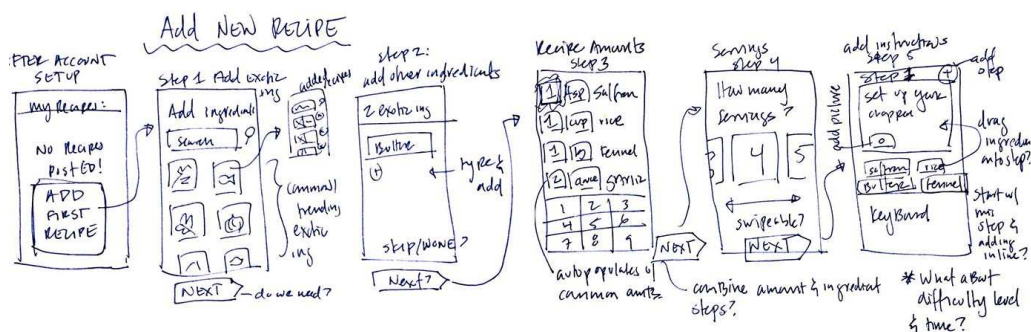 Add NEW RECIPE
FTER ACCOUNT
SETUP
My Recipes:
No Recipes
POSTED!
ADD
FIRST
RECIPE
Step 1 Add Exotic
ing
Add ingredients
Search
NEXT
do we need?
common/
trending
exotic
ing
step 2:
add other ingredients
2 Exotic ing
Butter
type &
add
skip/NONE?
Next?
Recipe Amounts
step 3
1 tsp Saffron
1 cup rice
1 lb Fennel
2
1 2 3
4 5 6
7 8 9
NEXT
autopopulates w/
common amts.
combine amount & ingredient
steps?
Servings
step 4
How many
servings?
3 4 5
swipeable?
NEXT
add picture
add instructions
step 5
step 1 +
add
step
set up your
chopped
drag
ingredien
step?
saffron rice
Butter Fennel
Keyboard
Start w/
step &
adding
inline?
* What about
difficulty level
& time?